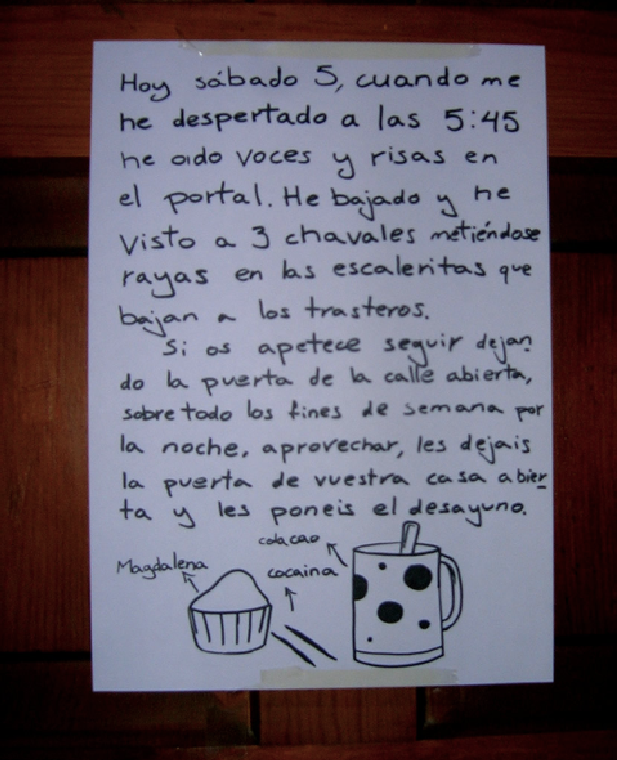 Hoy sábado 5, cuando me
he despertado a las 5:45
he oido voces y risas en
el portal. He bajado y he
visto a 3 chavales metiéndose
rayas en las escaleritas que
bajan a los trasteros.
Si os apetece seguir dejan
do la puerta de la calle abierta,
sobre todo los fines de semana por
la noche, aprovechar, les dejais
la puerta de vuestra casa abier
ta y les poneis el desayuno.
cola cao
Magdalena
cocaina